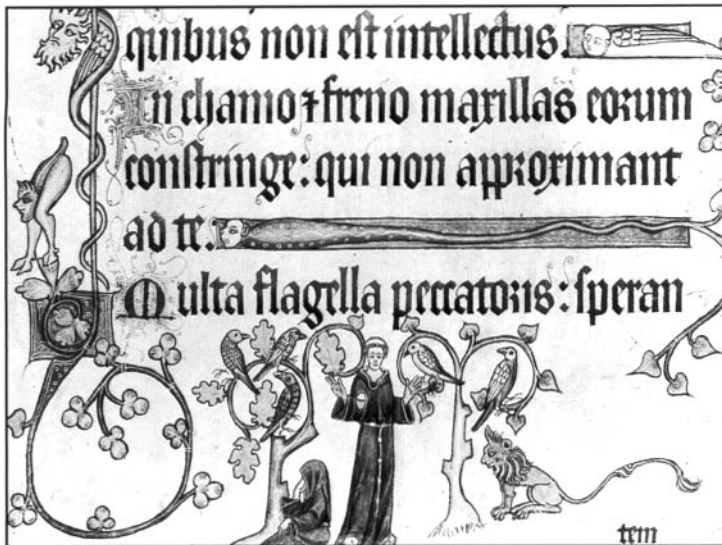 quibus non est intellectus.
In chamo ⁊ freno maxillas eorum
constringe: qui non approximant
ad te.
Multa flagella peccatoris: speran
tem